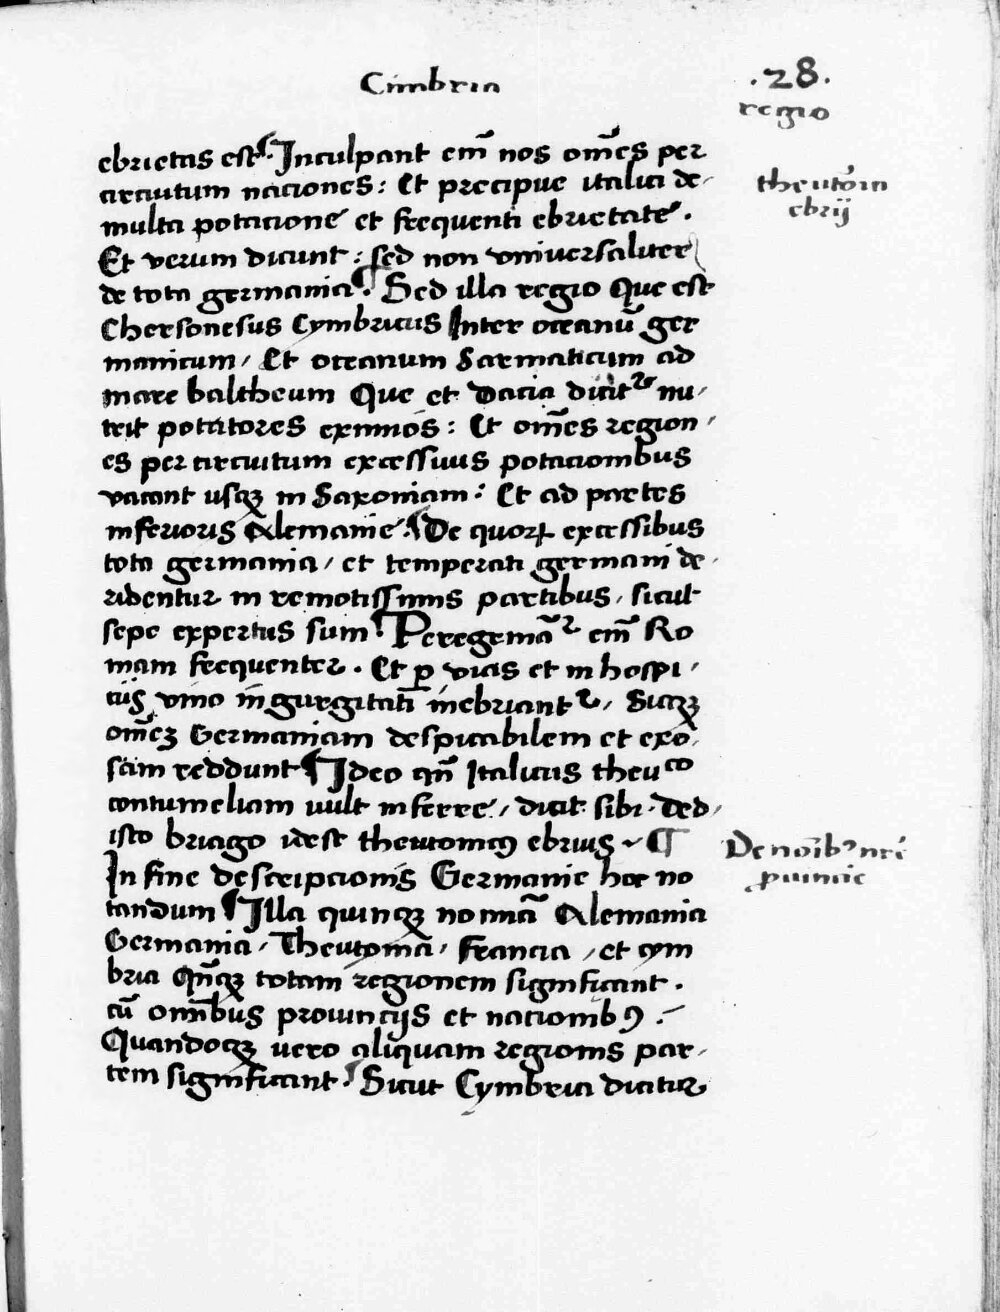 Cimbria
.28.
regio
ebrietas est. ¶ Inculpant em̄ nos om̄es per
circuitum naciones: Et precipue italici de-
multa potacione et frequenti ebrietate.
Et verum dicunt: sed non vniuersaliter
de tota germania ¶. Sed illa regio Que est
Chersonesus Cymbricus Inter oceanū ger
manicum, Et oceanum Sarmaticum ad
mare baltheum Que et Dacia dicitᷣ nu-
trit potatores eximios: Et om̄es region-
es per circuitum excessiuis potacionibus
vacant usqꝫ in Saxoniam: Et ad partes
inferioris Alemanie. ¶ De quoꝝ excessibus
tota germania, et temperati germani de-
ridentur in remotissimis partibus, sicut
sepe expertus sum ¶ Peregrinātᷣ em̄ Ro
mam frequenter. Et ꝑ vias et in hospi-
cijs vino ingurgitati inebriantᷣ, Sicqꝫ
om̄eꝫ Germaniam despicabilem et exo-
sam reddunt ¶ Ideo qn̄ Italicus theuco
contumeliam vult inferre, dicit sibi. Ded-
isco briago idest theutonicꝰ ebrius ~ ¶
In fine descripcionis Germanie hoc no
tandum ¶ Illa quinqꝫ nomīa Alemania
Germania, Theutonia, Francia, et cym
bria Qn̄qꝫ totam regionem significant.
cū omnibus prouincijs et nacionibꝰ.
Quandoqꝫ vero aliquam regionis par-
tem significant. ¶ Sicut Cymbria dicitur
theutonia
ebrij
De noībꝰ nrē
ꝓuincie